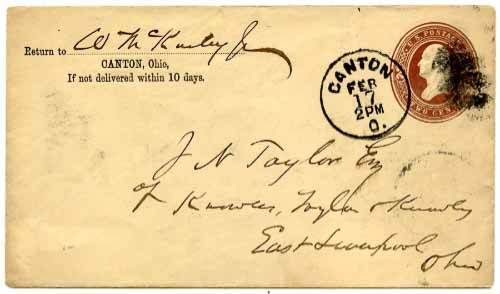 Return to W McKinley Jr
CANTON, Ohio,
If not delivered within 10 days.
CANTON
FEB
17
2PM
O.
U.S. POSTAGE
TWO CENTS
J N Taylor Esq
of Knowles, Taylor & Knowles
East Liverpool
Ohio